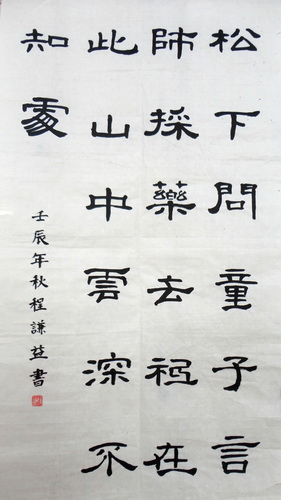 松下問童子言
師採藥去祇在
此山中雲深不
知處
壬辰年秋程謙益書